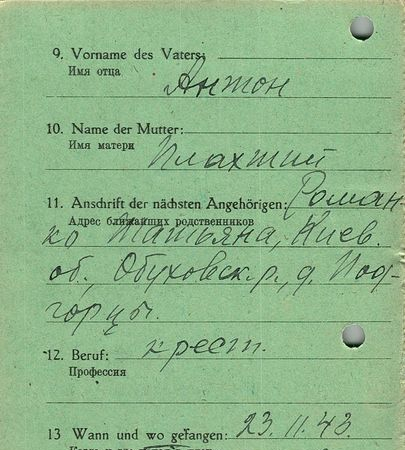 9. Vorname des Vaters:
Имя отца
Антон
10. Name der Mutter:
Имя матери
Плахтий
11. Anschrift der nächsten Angehörigen: Роман-
Адрес ближайших родственников
ко Татьяна, Киев.
об, Обуховск. р., д. Под-
горцы.
12. Beruf: крест.
Профессия
13 Wann und wo gefangen: 23. 11. 43.